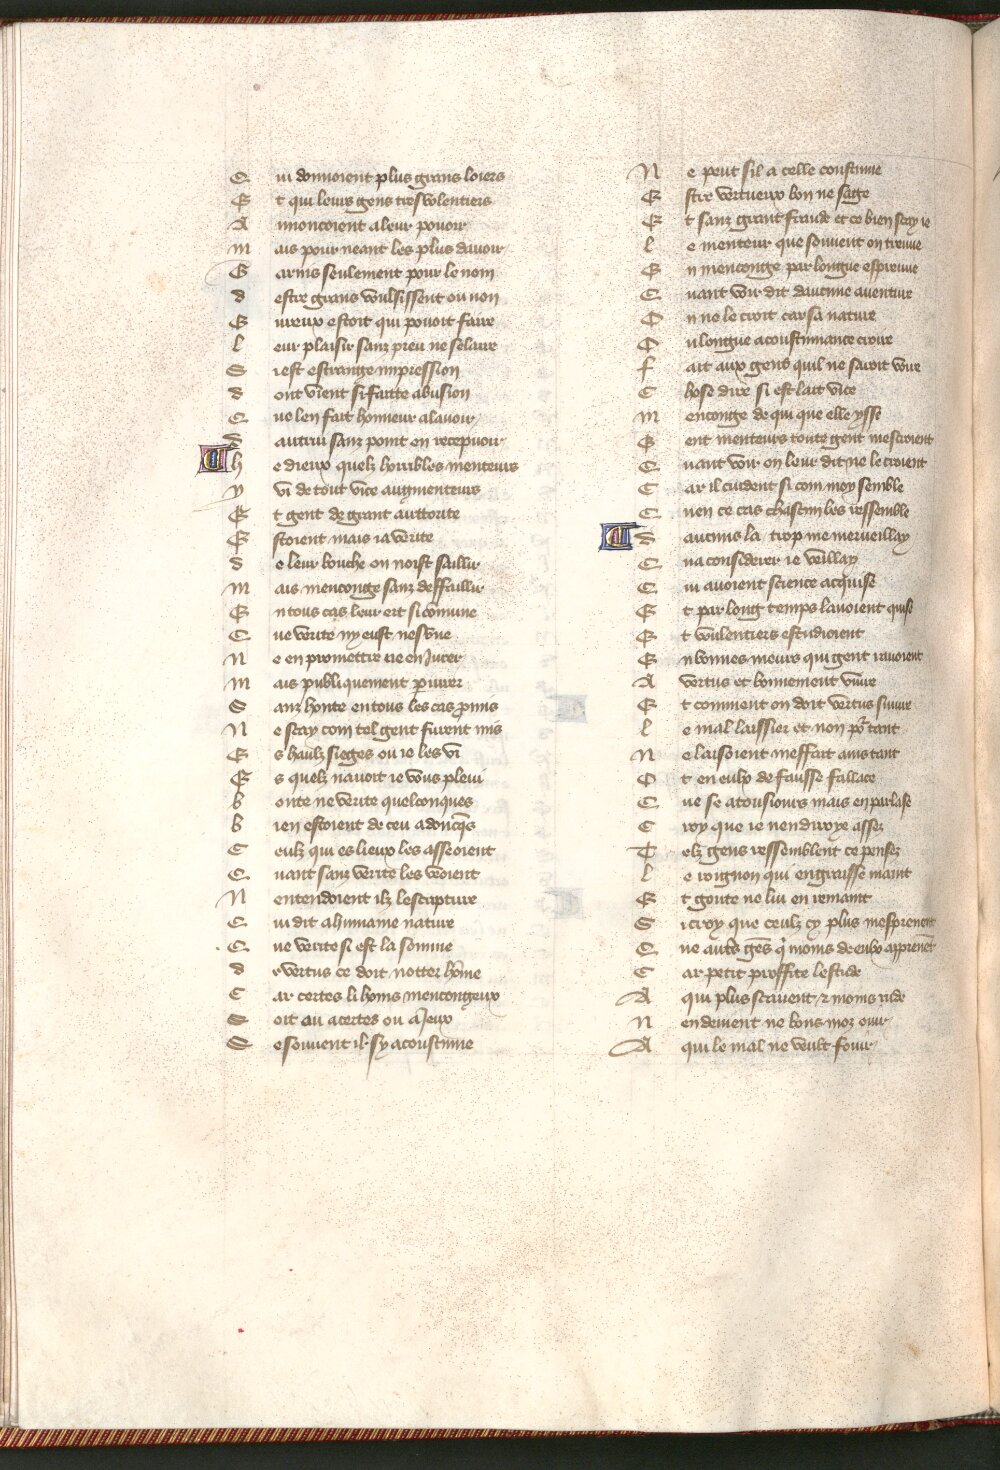 Qui donnoient plus grans loiers
Et qui leurs gens tresvolentiers
Annoncoient a leur povoir
Mais pour neant les plus davoir
Garnis seulement pour le nom
destre grans voulsissent ou non
Eureux estoit qui povoit faire
leur plaisir sanz preu ne selaire
Si est estrange impression
dont vient si faitte abusion
Que len fait honneur alavoir
dautrui sanz point en recepvoir
he dieux quelz horribles menteurs
y vi de tout vice augmenteurs
Et gent de grant auttorite
Estoient mais ia verite
de leur bouche on noist saillir
mais mencongе sanz deffaillir
En tous cas leur ert si comune
Que verite ny eust nesune
Ne en promettre ne en Jurer
mais publiquement pariurer
Sanz honte en tous les cas promis
Ne scay com tel gent furent mis
Es haulz sieges ou ie les vi
Es quelz navoit ie vous plevi
bonte ne verite quelconques
bien estoient deceu adoncques
Ceulz qui es lieux les asseoient
Quant sanz verite les veoient
Nentendoient ilz lescripture
Qui dit a humaine nature
Que verite si est la somme
de vertus ce doit notter home
Car certes li homs mencongeux
Soit ou acertes ou a Jeux
Se souvent il sy acoustume
Ne peut sil a celle coustume
Estre vertueux bon ne sage
Et sanz grant fraude et ce bien scay ie
le menteur que souvent on treuve
En mencongе par longue espreuve
Quant voir dit daucune aventure
On ne le croit car sa nature
Ou longue acoustumance encore
fait aux gens quil ne saroit voire
Chose dire si est lait vice
Mencongе de qui que elle ysse
Et menteurs toute gent mescroient
Quant voir on leur dit ne le croient
Car il cuident si com moy semble
Quen ce cas chascun les ressemble
daucuns la trop me merveillay
Qua considerer ie veillay
Qui avoient science acquise
Et par long temps lavoient quise
Et voulentiers estudioient
En bonnes meurs qui gent ravoient
A vertus et bonnement vivre
Et comment on doit vertus suivre
le mal laissier et non pour tant
Ne laissoient meffait autant
Ot en eulx de fausse fallace
Que se a tousiours mais en parlasse
Croy que ie nen diroye assez
Telz gens ressemblent ce pensez
le roignon qui engraisse maint
Et goute ne lui en remaint
Si croy que ceulz cy plus mesprenent
Que autres gens qui moins de eulx apprenent
Car petit proffite lestude
A qui plus scauent et moins rude
Nendeuient ne bons moz ouir
A qui le mal ne veult fouir